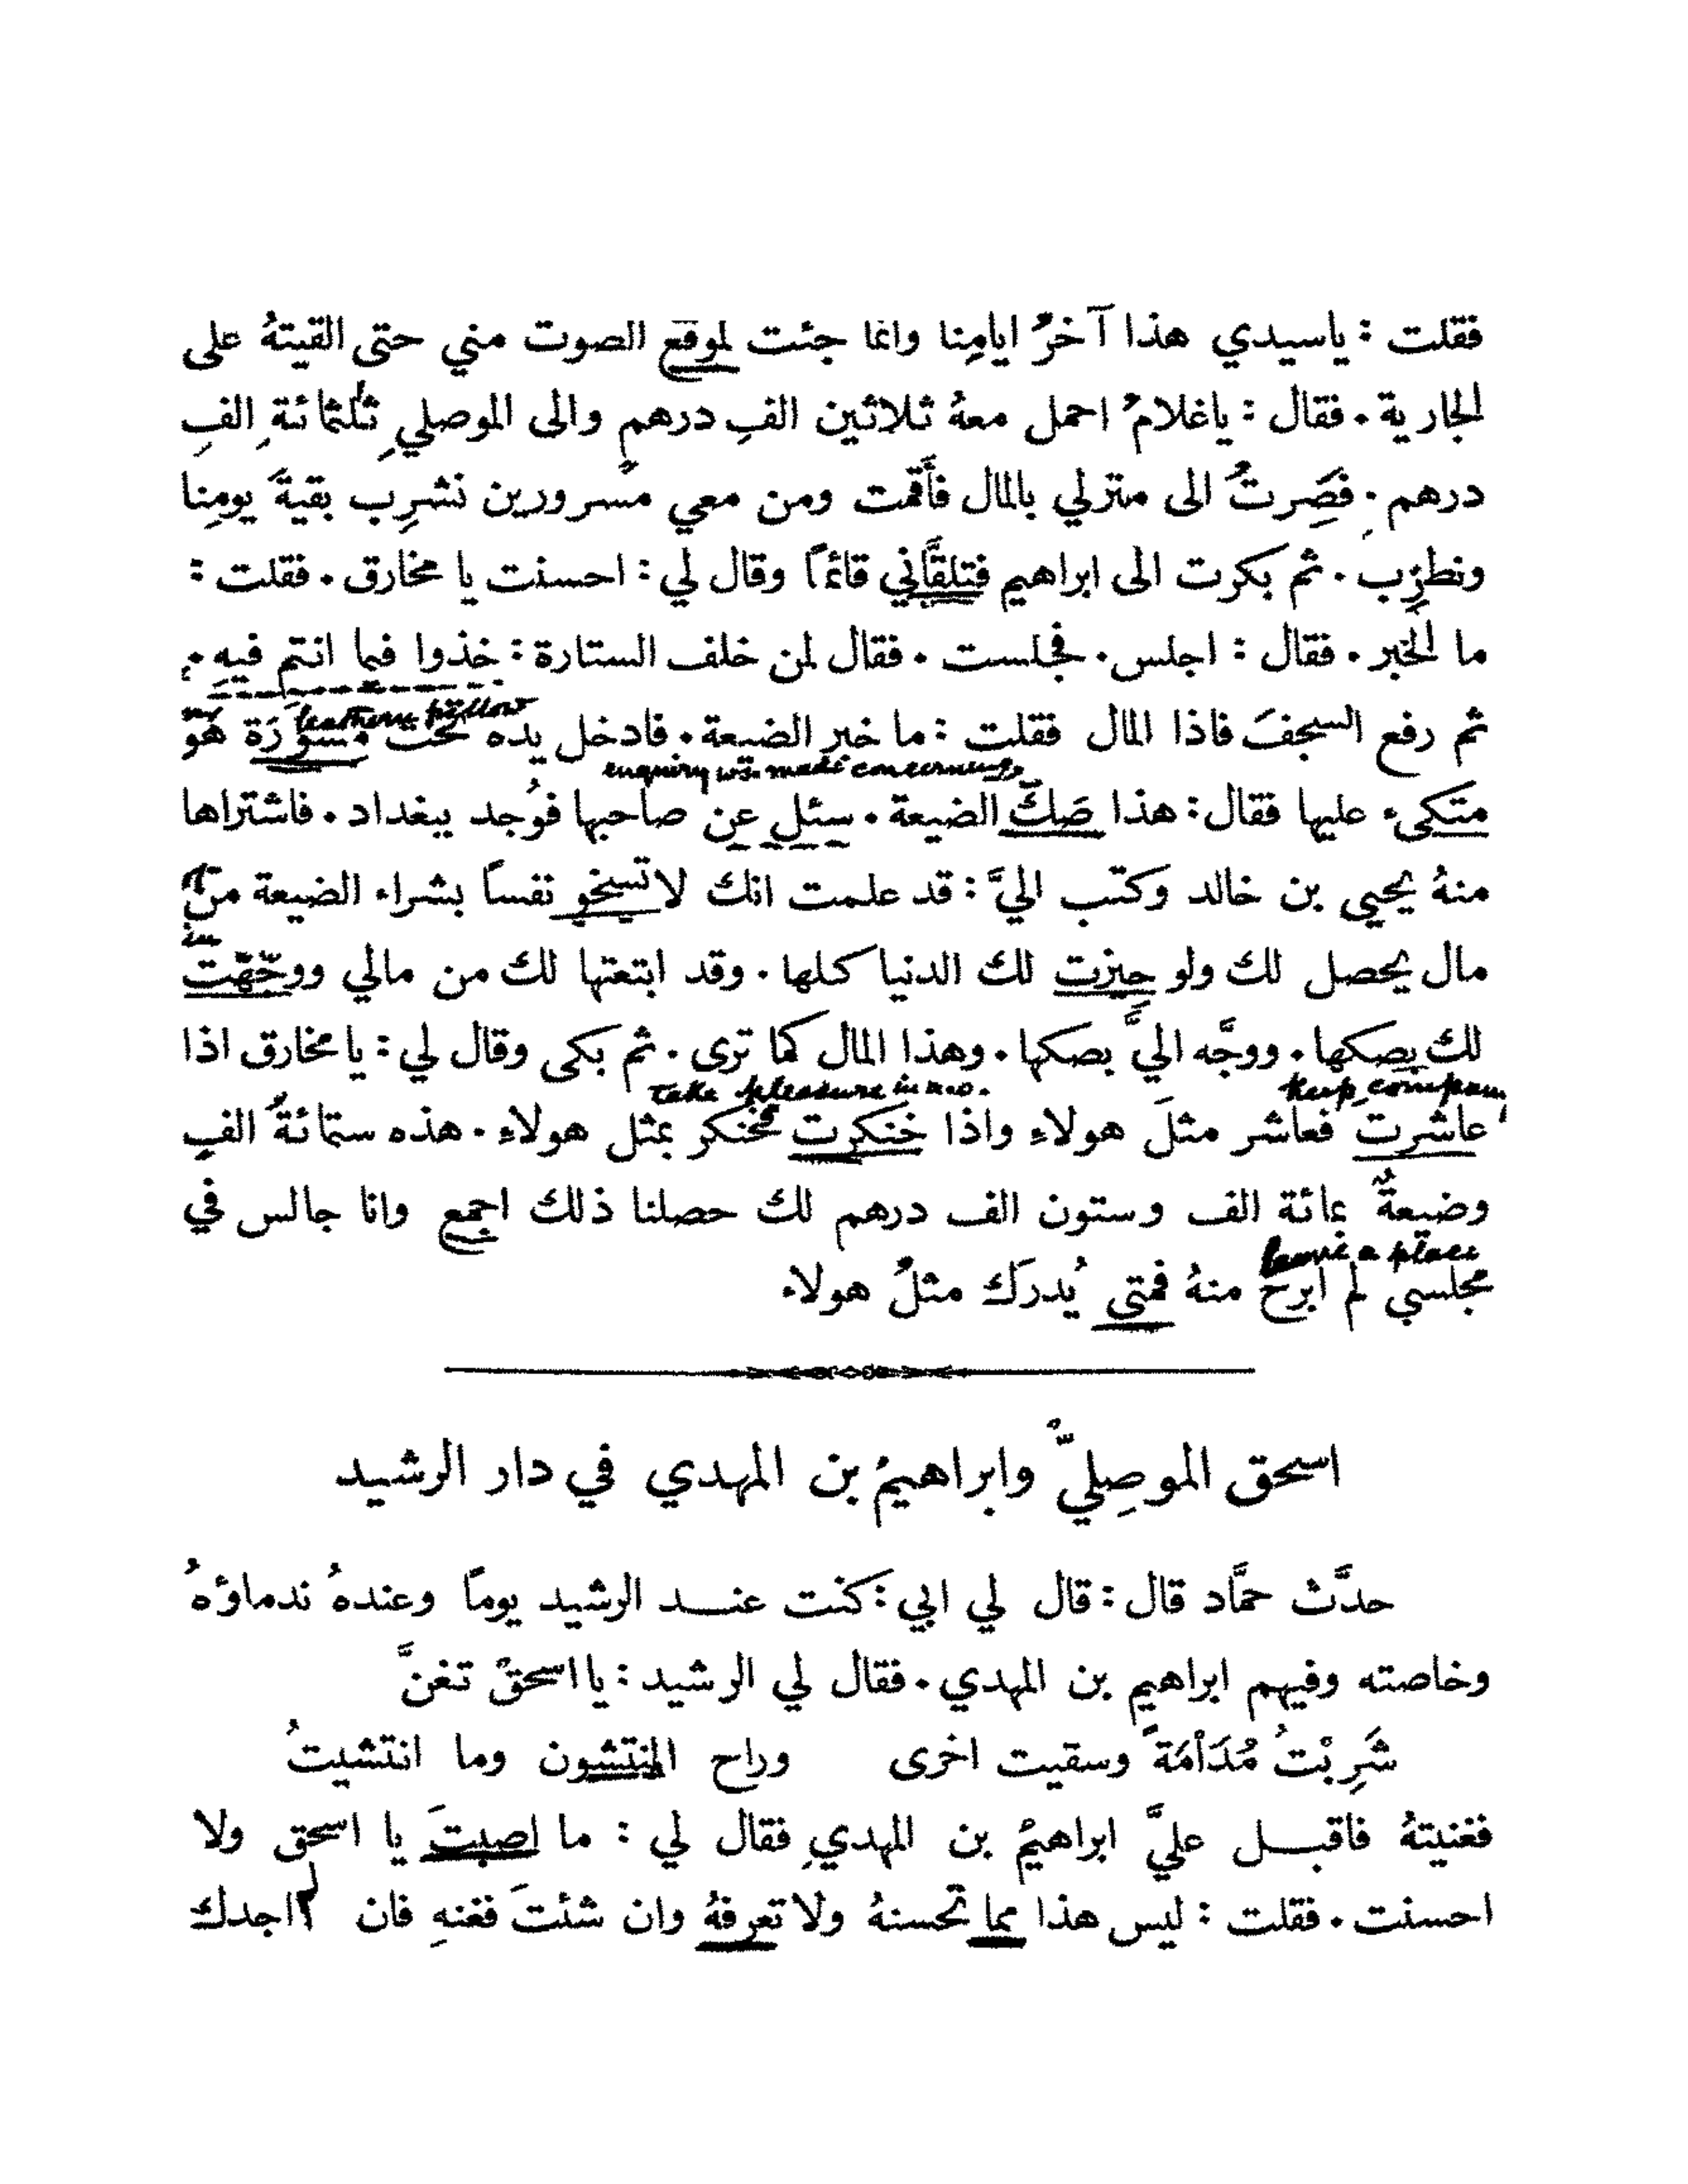 فقلت : ياسيدي هذا آخرُ ايامِنا وانما جئت لموقع الصوت مني حتى القيتهُ على
الجارية . فقال : ياغلامُ احمل معهُ ثلاثين الفِ درهمٍ والى الموصلي ثلثمائة الفِ
درهم . فصِرتُ الى منزلي بالمال فأَقمت ومن معي مسرورين نشرب بقيةَ يومِنا
ونطرِب . ثم بكرت الى ابراهيم فتلقَّاني قائمًا وقال لي : احسنت يا مخارق . فقلت :
ما الخبر . فقال : اجلس . فجلست . فقال لمن خلف الستارة : خذوا فيما انتم فيهِ .
leathern pillow
ثم رفع السجفَ فاذا المال فقلت : ما خبر الضيعة . فادخل يده تحت مسوَرَة هو
enquiry was made concerning
متكىء عليها فقال : هذا صَكّ الضيعة . سئل عن صاحبها فوُجد ببغداد . فاشتراها
منهُ يحيى بن خالد وكتب اليَّ : قد علمت انك لا تسخو نفساً بشراء الضيعة من
مال يحصل لك ولو حيزت لك الدنيا كلها . وقد ابتعتها لك من مالي ووجّهت
لك بصكها . ووجَّه اليَّ بصكها . وهذا المال كما ترى . ثم بكى وقال لي : يا مخارق اذا
take pleasure in keep company
عاشرت فعاشر مثلَ هولاءِ واذا خنكرت فخنكر بمثل هولاءِ . هذه ستمائةُ الفٍ
وضيعةٌ بمائة الف وستون الف درهم لك حصلنا ذلك اجمع وانا جالس في
leave a place
مجلسي لم ابرح منهُ فمتى يُدرَك مثلُ هولاء
اسحق الموصِليّ وابراهيمُ بن المهدي في دار الرشيد
حدَّث حمَّاد قال : قال لي ابي : كنت عنـــد الرشيد يوماً وعندهُ ندماؤهُ
وخاصته وفيهم ابراهيم بن المهدي . فقال لي الرشيد : يا اسحقُ تغنَّ
شَرِبْتُ مُدَاْمَةً وسقيت اخرى وراح المنتشون وما انتشيتُ
فغنيتهُ فاقبـــل عليَّ ابراهيمُ بن المهدي فقال لي : ما اصبتَ يا اسحق ولا
احسنت . فقلت : ليس هذا مما تحسنهُ ولا تعرفهُ وان شئتَ فغنهِ فان لم اجدك